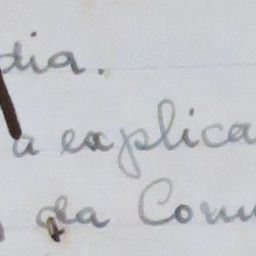 dia.
a explica
da Com